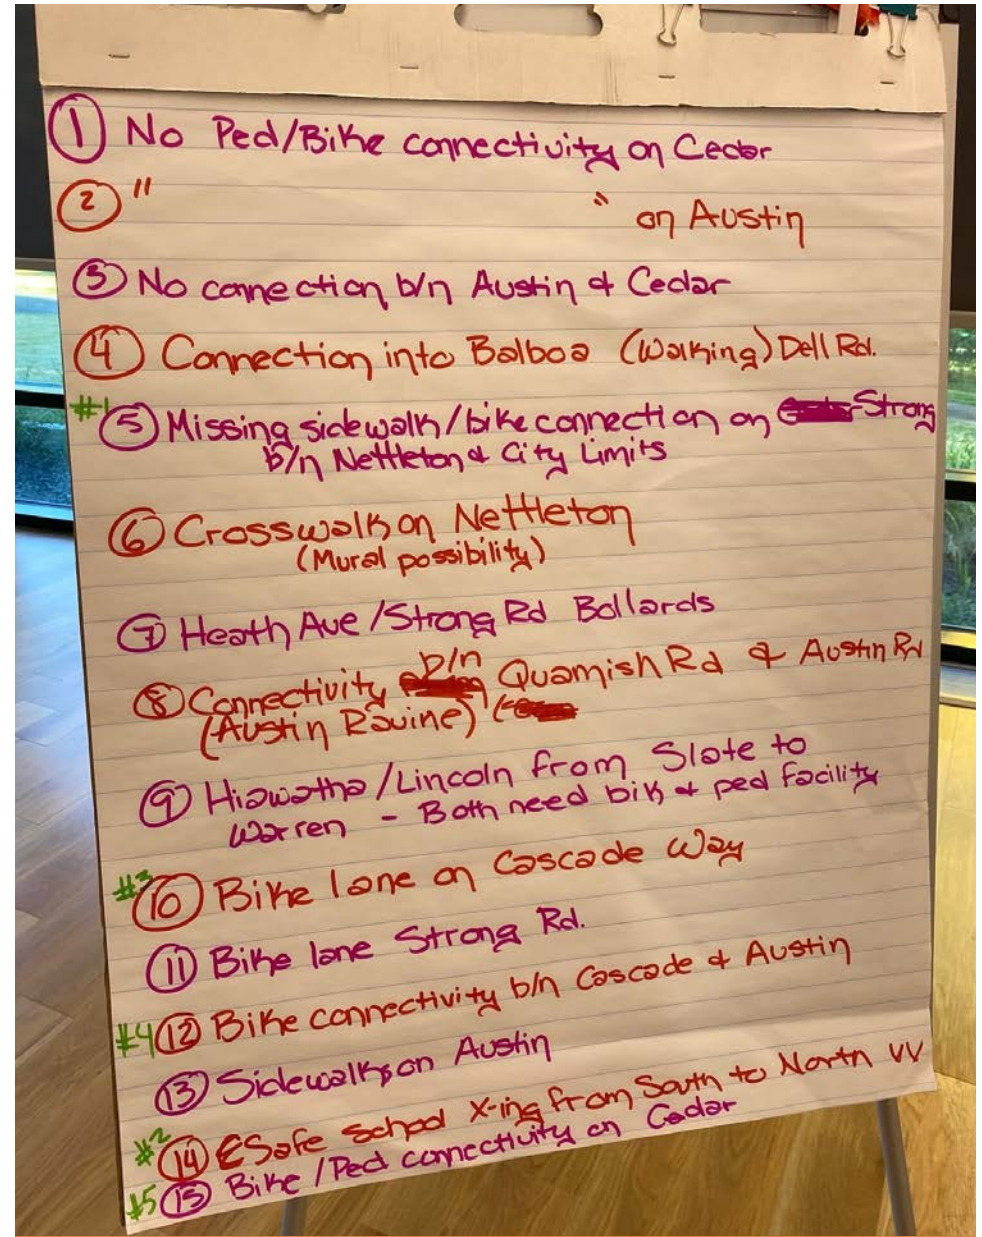 ① No Ped/Bike connectivity on Cedar
② " " on Austin
③ No connection b/n Austin & Cedar
④ Connection into Balboa (Walking) Dell Rd.
#1 ⑤ Missing sidewalk/bike connection on Strong
b/n Nettleton & City Limits
⑥ Crosswalk on Nettleton
(Mural possibility)
⑦ Heath Ave/Strong Rd Bollards
⑧ Connectivity b/n Quamish Rd & Austin Rd
(Austin Ravine)
⑨ Hiawatha/Lincoln from Slate to
Warren - Both need bik & ped facility
#3 ⑩ Bike lane on Cascade Way
⑪ Bike lane Strong Rd.
#4 ⑫ Bike connectivity b/n Cascade & Austin
⑬ Sidewalks on Austin
#2 ⑭ Safe school X-ing from South to North VV
#5 ⑮ Bike/Ped connectivity on Cedar